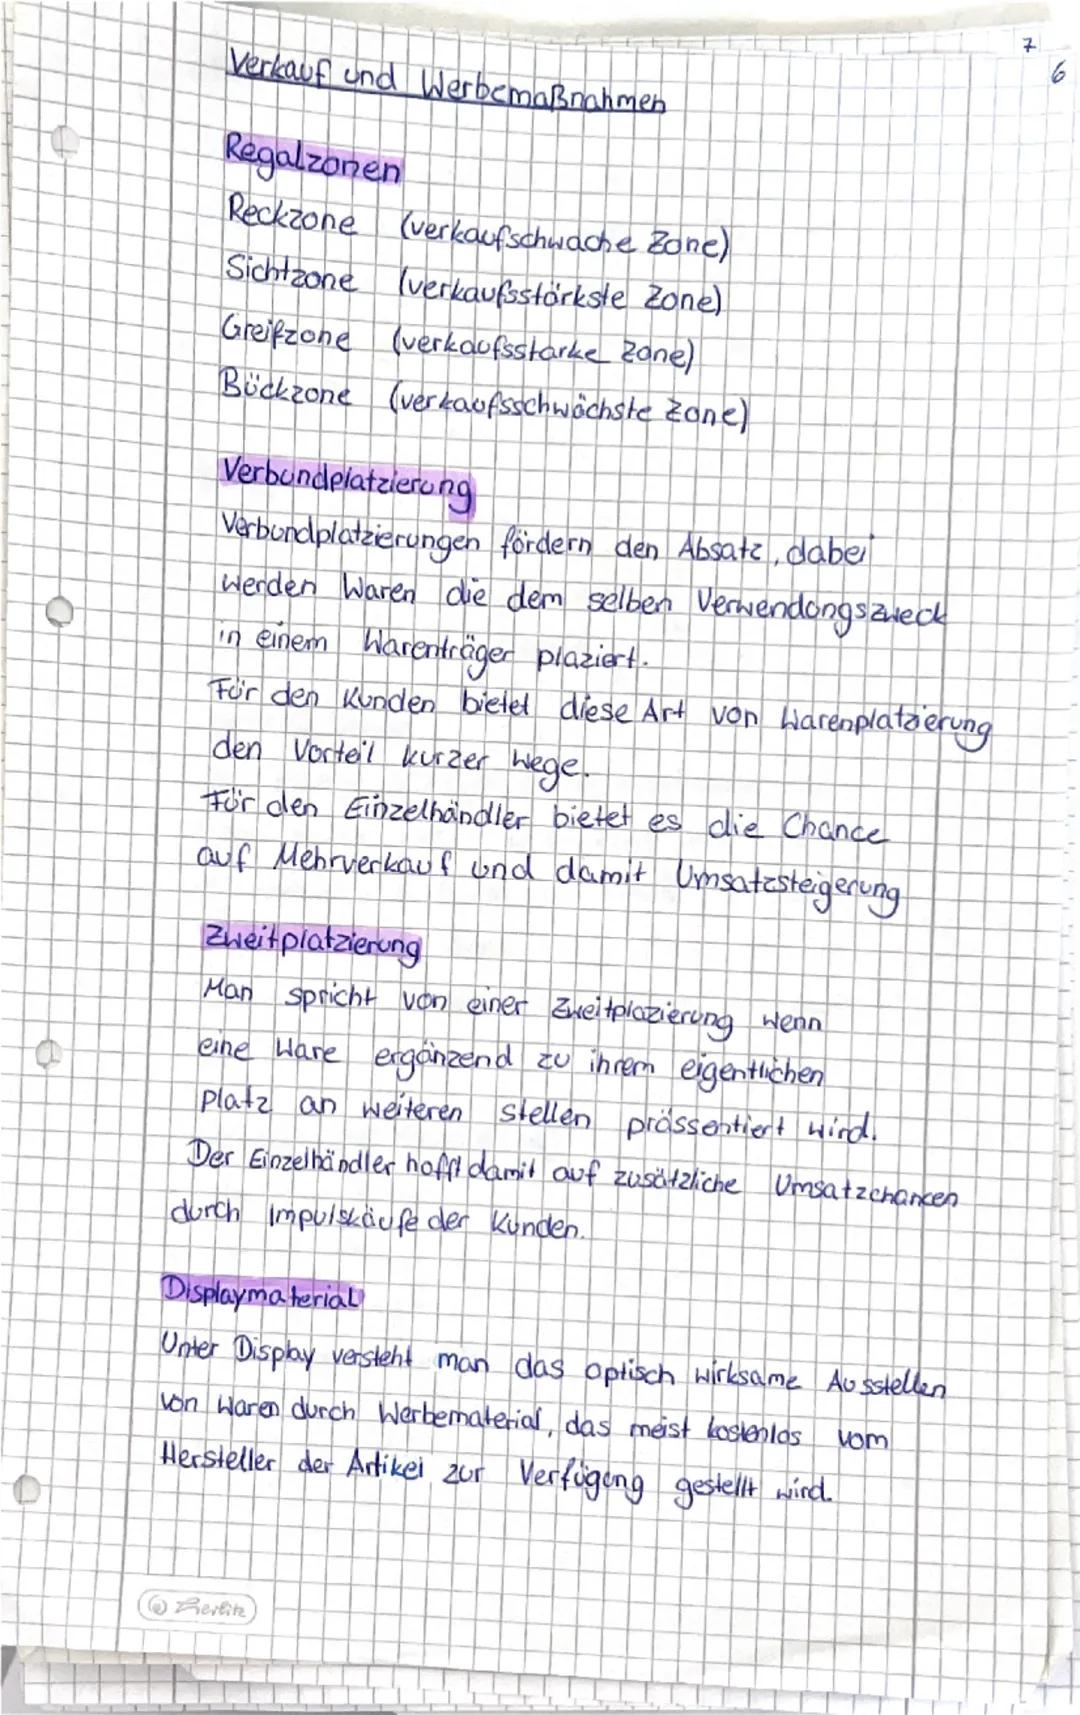 7
6
Verkauf und Werbemaßnahmen
Regalzonen
Reckzone (verkaufschwache Zone)
Sichtzone (verkaufsstärkste Zone)
Greifzone (verkaufsstarke Zone)
Bückzone (verkaufsschwächste Zone)
Verbundplatzierung
Verbundplatzierungen fördern den Absatz, dabei
werden Waren die dem selben Verwendungszweck
in einem Warenträger plaziert.
Für den Kunden bietet diese Art von Warenplatzierung
den Vorteil kurzer Wege.
Für den Einzelhändler bietet es die Chance
auf Mehrverkauf und damit Umsatzsteigerung
Zweitplatzierung
Man spricht von einer Zweitplazierung wenn
eine Ware ergänzend zu ihrem eigentlichen
Platz an weiteren stellen prässentiert wird.
Der Einzelhändler hofft damit auf zusätzliche Umsatzchancen
durch Impulskäufe der Kunden.
Displaymaterial
Unter Display versteht man das optisch wirksame Ausstellen
von Waren durch Werbematerial, das meist kostenlos vom
Hersteller der Artikel zur Verfügung gestellt wird.
Herlitz